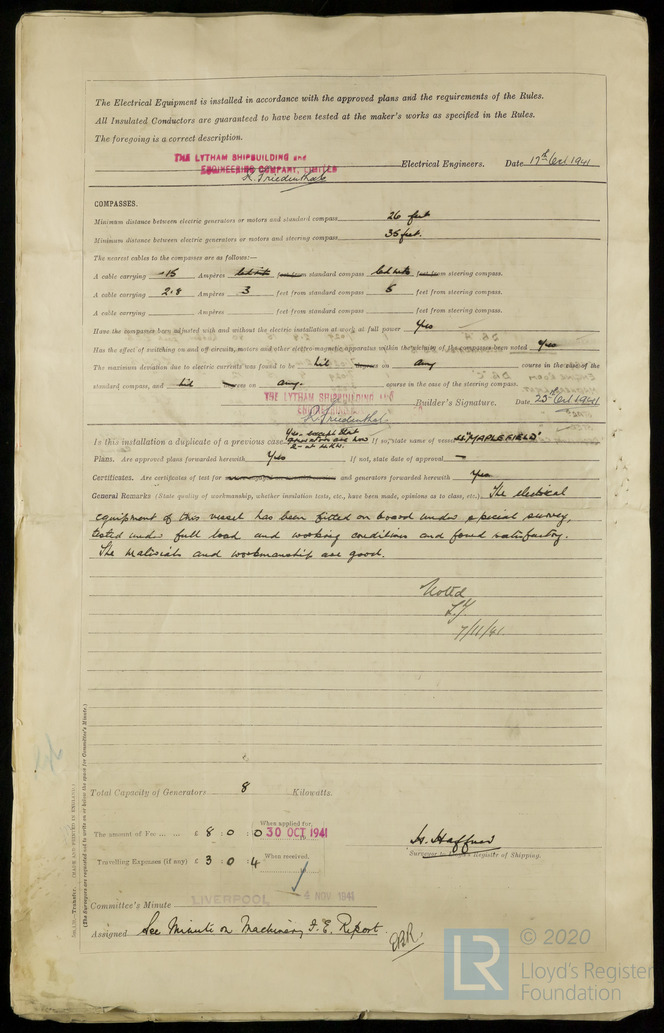 The Electrical Equipment is installed in accordance with the approved plans and the requirements of the Rules.
All Insulated Conductors are guaranteed to have been tested at the maker's works as specified in the Rules.
The foregoing is a correct description.
THE LYTHAM SHIPBUILDING and
ENGINEERING COMPANY, LIMITED Electrical Engineers. Date 17th Oct 1941
R. Friedenthal
COMPASSES.
Minimum distance between electric generators or motors and standard compass 26 feet
Minimum distance between electric generators or motors and steering compass 35 feet.
The nearest cables to the compasses are as follows:—
A cable carrying .15 Ampères led into feet from standard compass led into feet from steering compass.
A cable carrying 2.8 Ampères 3 feet from standard compass 5 feet from steering compass.
A cable carrying Ampères feet from standard compass feet from steering compass.
Have the compasses been adjusted with and without the electric installation at work at full power Yes
Has the effect of switching on and off circuits, motors and other electro-magnetic apparatus within the vicinity of the compasses been noted Yes
The maximum deviation due to electric currents was found to be Nil degrees on any course in the case of the
standard compass, and Nil degrees on any course in the case of the steering compass.
THE LYTHAM SHIPBUILDING and
R. Friedenthal Builder's Signature. Date 25th Oct 1941.
Yes. except that
Is this installation a duplicate of a previous case generators are now If so, state name of vessel "MAPLEFIELD"
2 - at 4 K.W.
Plans. Are approved plans forwarded herewith Yes If not, state date of approval —
Certificates. Are certificates of test for and generators forwarded herewith Yes
General Remarks (State quality of workmanship, whether insulation tests, etc., have been made, opinions as to class, etc.) The electrical
equipment of this vessel has been fitted on board under special survey,
tested under full load and working conditions and found satisfactory.
The materials and workmanship are good.
Noted
7/11/41.
Total Capacity of Generators 8 Kilowatts.
The amount of Fee ... ... £ 8 : 0 : 0 When applied for, 30 OCT 1941
Travelling Expenses (if any) £ 3 : 0 : 4 When received,
Surveyor to Lloyd's Register of Shipping.
Committee's Minute LIVERPOOL 4 NOV 1941
Assigned See Minute on Machinery F.E. Report.
(MADE AND PRINTED IN ENGLAND.)
(The Surveyors are requested not to write on or below the space for Committee's Minute.)
LR © 2020
Lloyd's Register
Foundation